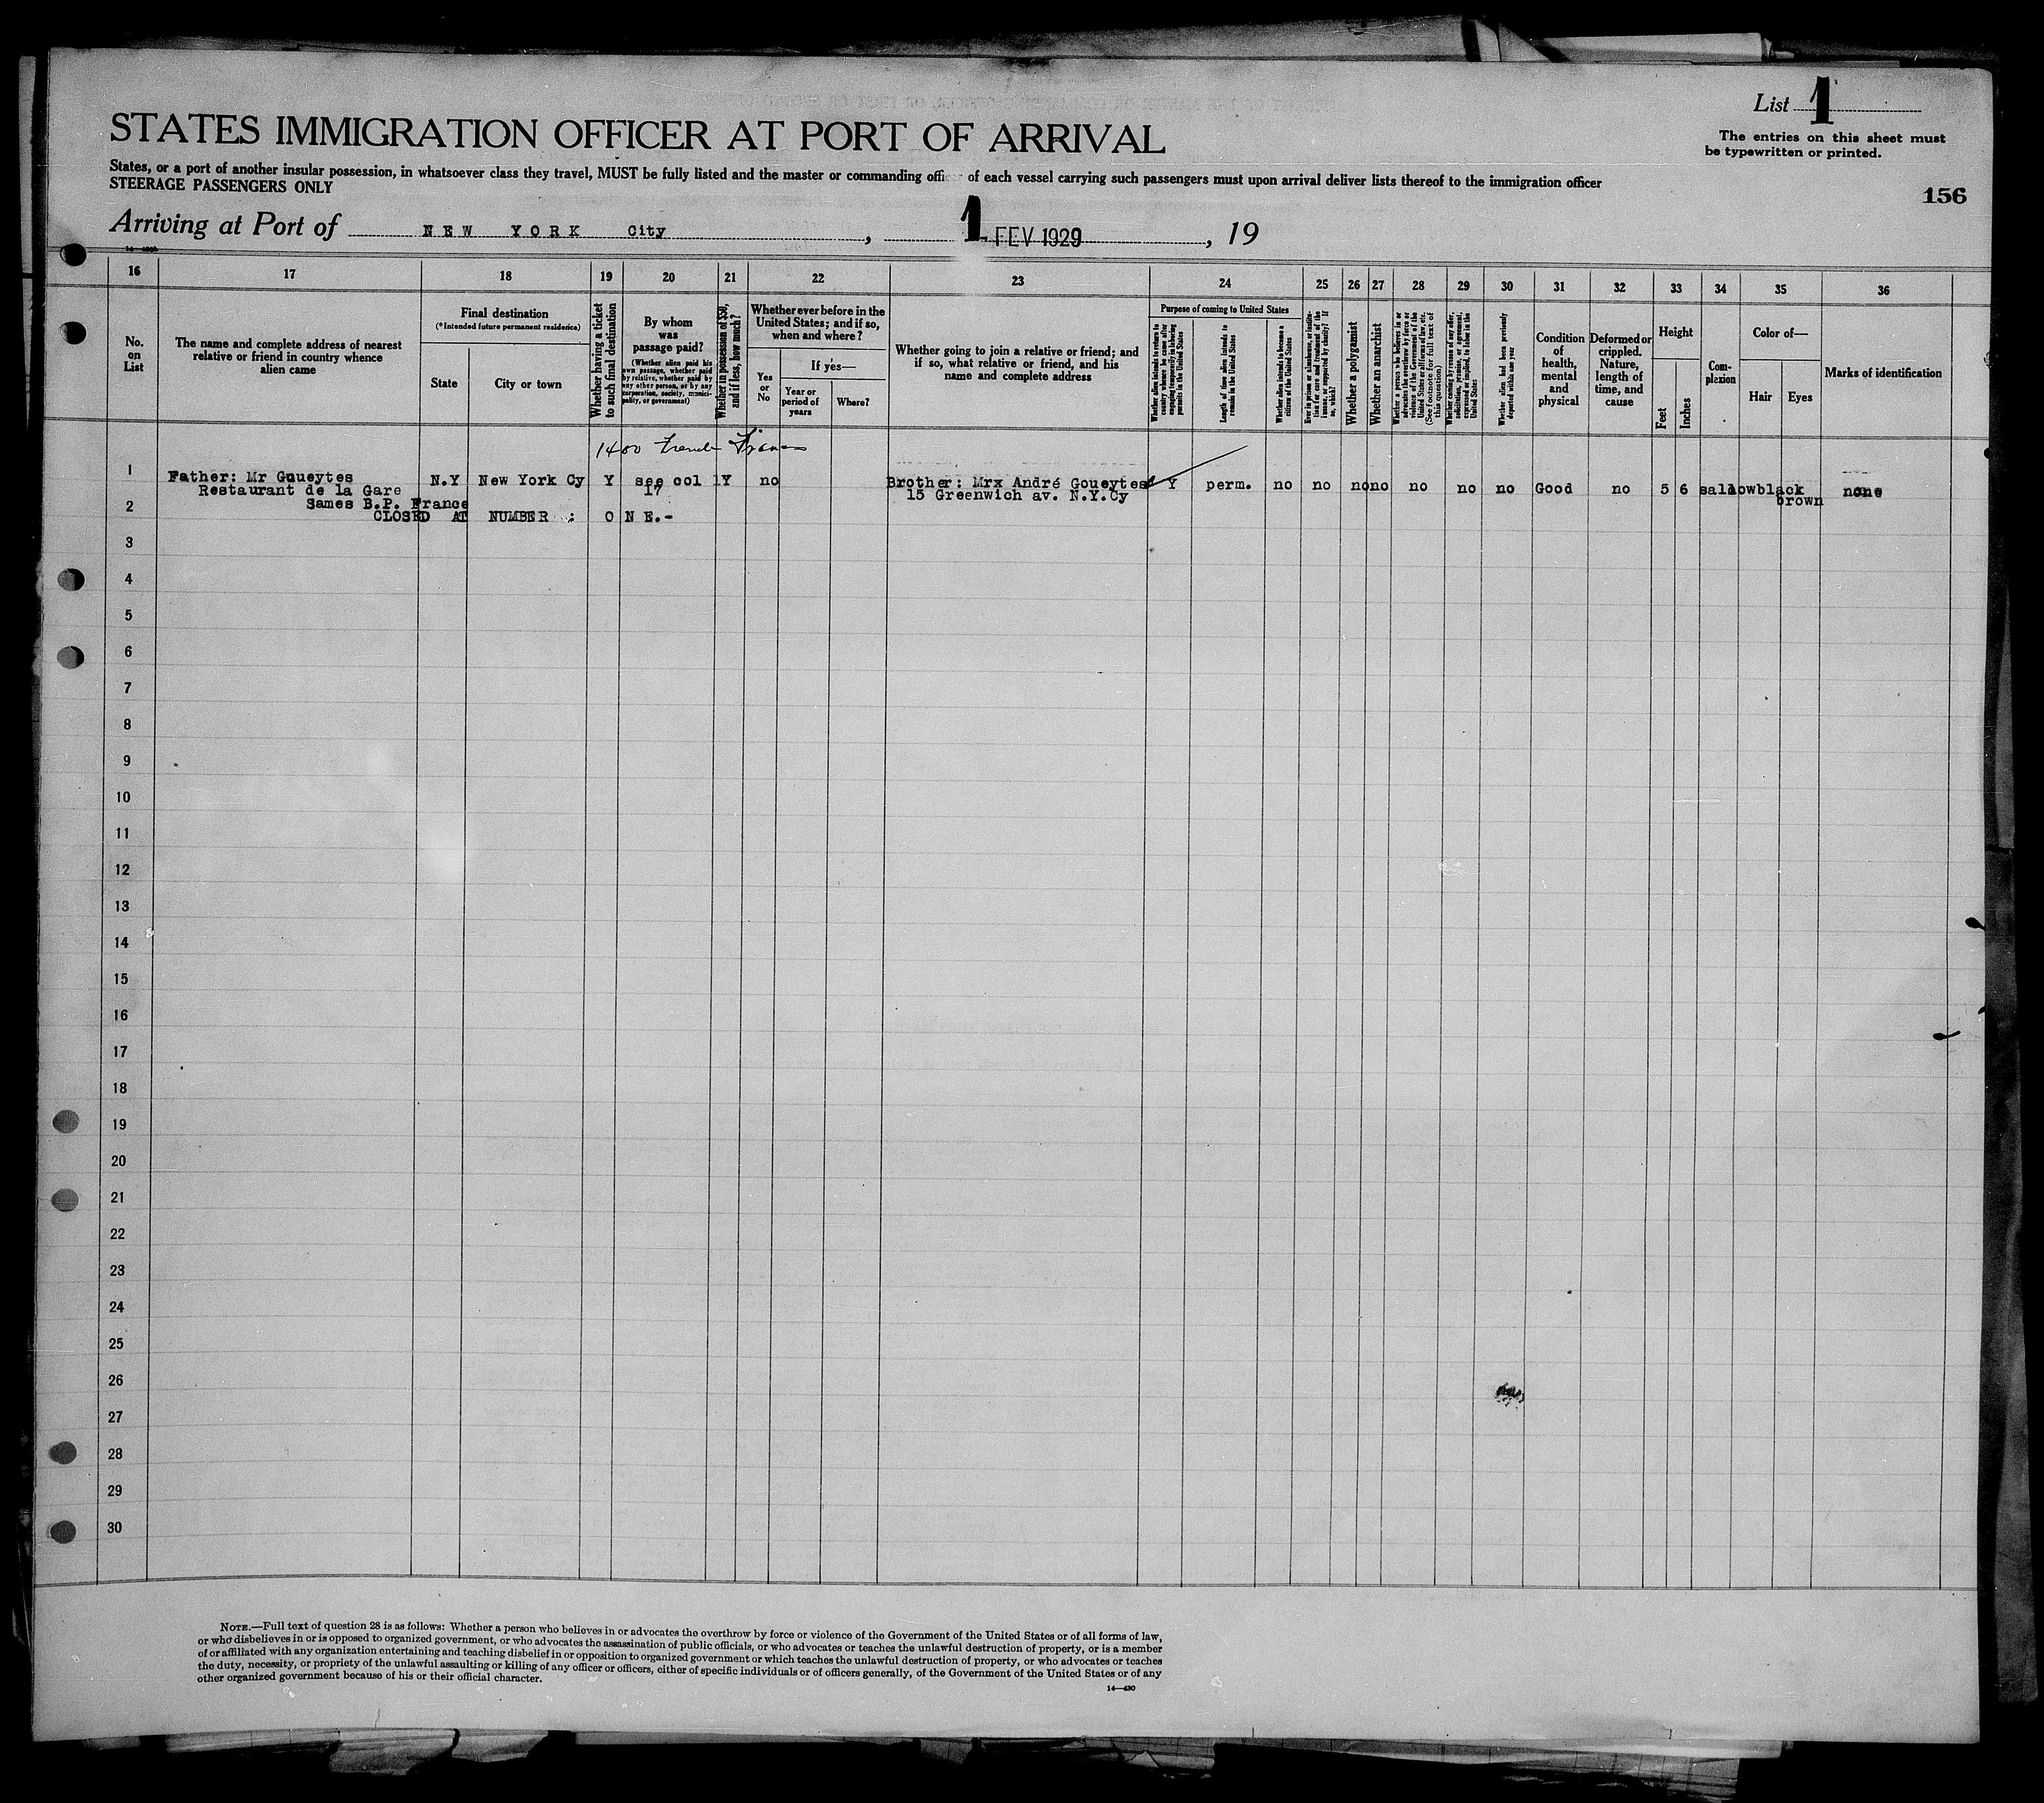 List 1
The entries on this sheet must
be typewritten or printed.
STATES IMMIGRATION OFFICER AT PORT OF ARRIVAL
States, or a port of another insular possession, in whatsoever class they travel, MUST be fully listed and the master or commanding officer of each vessel carrying such passengers must upon arrival deliver lists thereof to the immigration officer
STEERAGE PASSENGERS ONLY
156
Arriving at Port of NEW YORK City, 1 FEV 1929, 19
16 17 18 19 20 21 22 23 24 25 26 27 28 29 30 31 32 33 34 35 36
No.
on
List
The name and complete address of nearest
relative or friend in country whence
alien came
Final destination
(*Intended future permanent residence)
State
City or town
Whether having a ticket
to such final destination
By whom
was
passage paid?
(Whether alien paid his
own passage, whether paid
by relative, whether paid by
any other person, or by any
corporation, society, munici-
pality, or government)
Whether in possession of $50,
and if less, how much?
Whether ever before in the
United States; and if so,
when and where?
Yes
or
No
If yes—
Year or
period of
years
Where?
Whether going to join a relative or friend; and
if so, what relative or friend, and his
name and complete address
Purpose of coming to United States
Whether alien intends to return to
country whence he came after
engaging temporarily in laboring
pursuits in the United States
Length of time alien intends to
remain in the United States
Whether alien intends to become a
citizen of the United States
Ever in prison or almshouse, or institu-
tion for care and treatment of the
insane, or supported by charity? If
so, which?
Whether a polygamist
Whether an anarchist
Whether a person who believes in or
advocates the overthrow by force or
violence of the Government of the
United States or all forms of law, etc.
(See footnote for full text of
this question)
Whether coming by reason of any offer,
solicitation, promise, or agreement,
expressed or implied, to labor in the
United States
Whether alien had been previously
deported within one year
Condition
of
health,
mental
and
physical
Deformed or
crippled.
Nature,
length of
time, and
cause
Height
Feet
Inches
Com-
plexion
Color of—
Hair
Eyes
Marks of identification
1400 French Francs
1 Father: Mr Goueytes N.Y New York Cy Y see col 17 Y no Brother: Mrx André Goueytes Y perm. no no no no no no no Good no 5 6 sallow black brown none
Restaurant de la Gare 15 Greenwich av. N.Y.Cy
2 Sames B.P. France
CLOSED AT NUMBER : ONE.-
3
4
5
6
7
8
9
10
11
12
13
14
15
16
17
18
19
20
21
22
23
24
25
26
27
28
29
30
NOTE.—Full text of question 28 is as follows: Whether a person who believes in or advocates the overthrow by force or violence of the Government of the United States or of all forms of law,
or who disbelieves in or is opposed to organized government, or who advocates the assassination of public officials, or who advocates or teaches the unlawful destruction of property, or is a member
of or affiliated with any organization entertaining and teaching disbelief in or opposition to organized government or which teaches the unlawful destruction of property, or who advocates or teaches
the duty, necessity, or propriety of the unlawful assaulting or killing of any officer or officers, either of specific individuals or of officers generally, of the Government of the United States or of any
other organized government because of his or their official character.
14—430